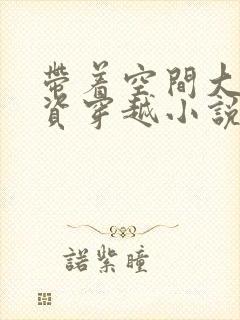 帶着空間大
資穿越小說
諾紫瞳